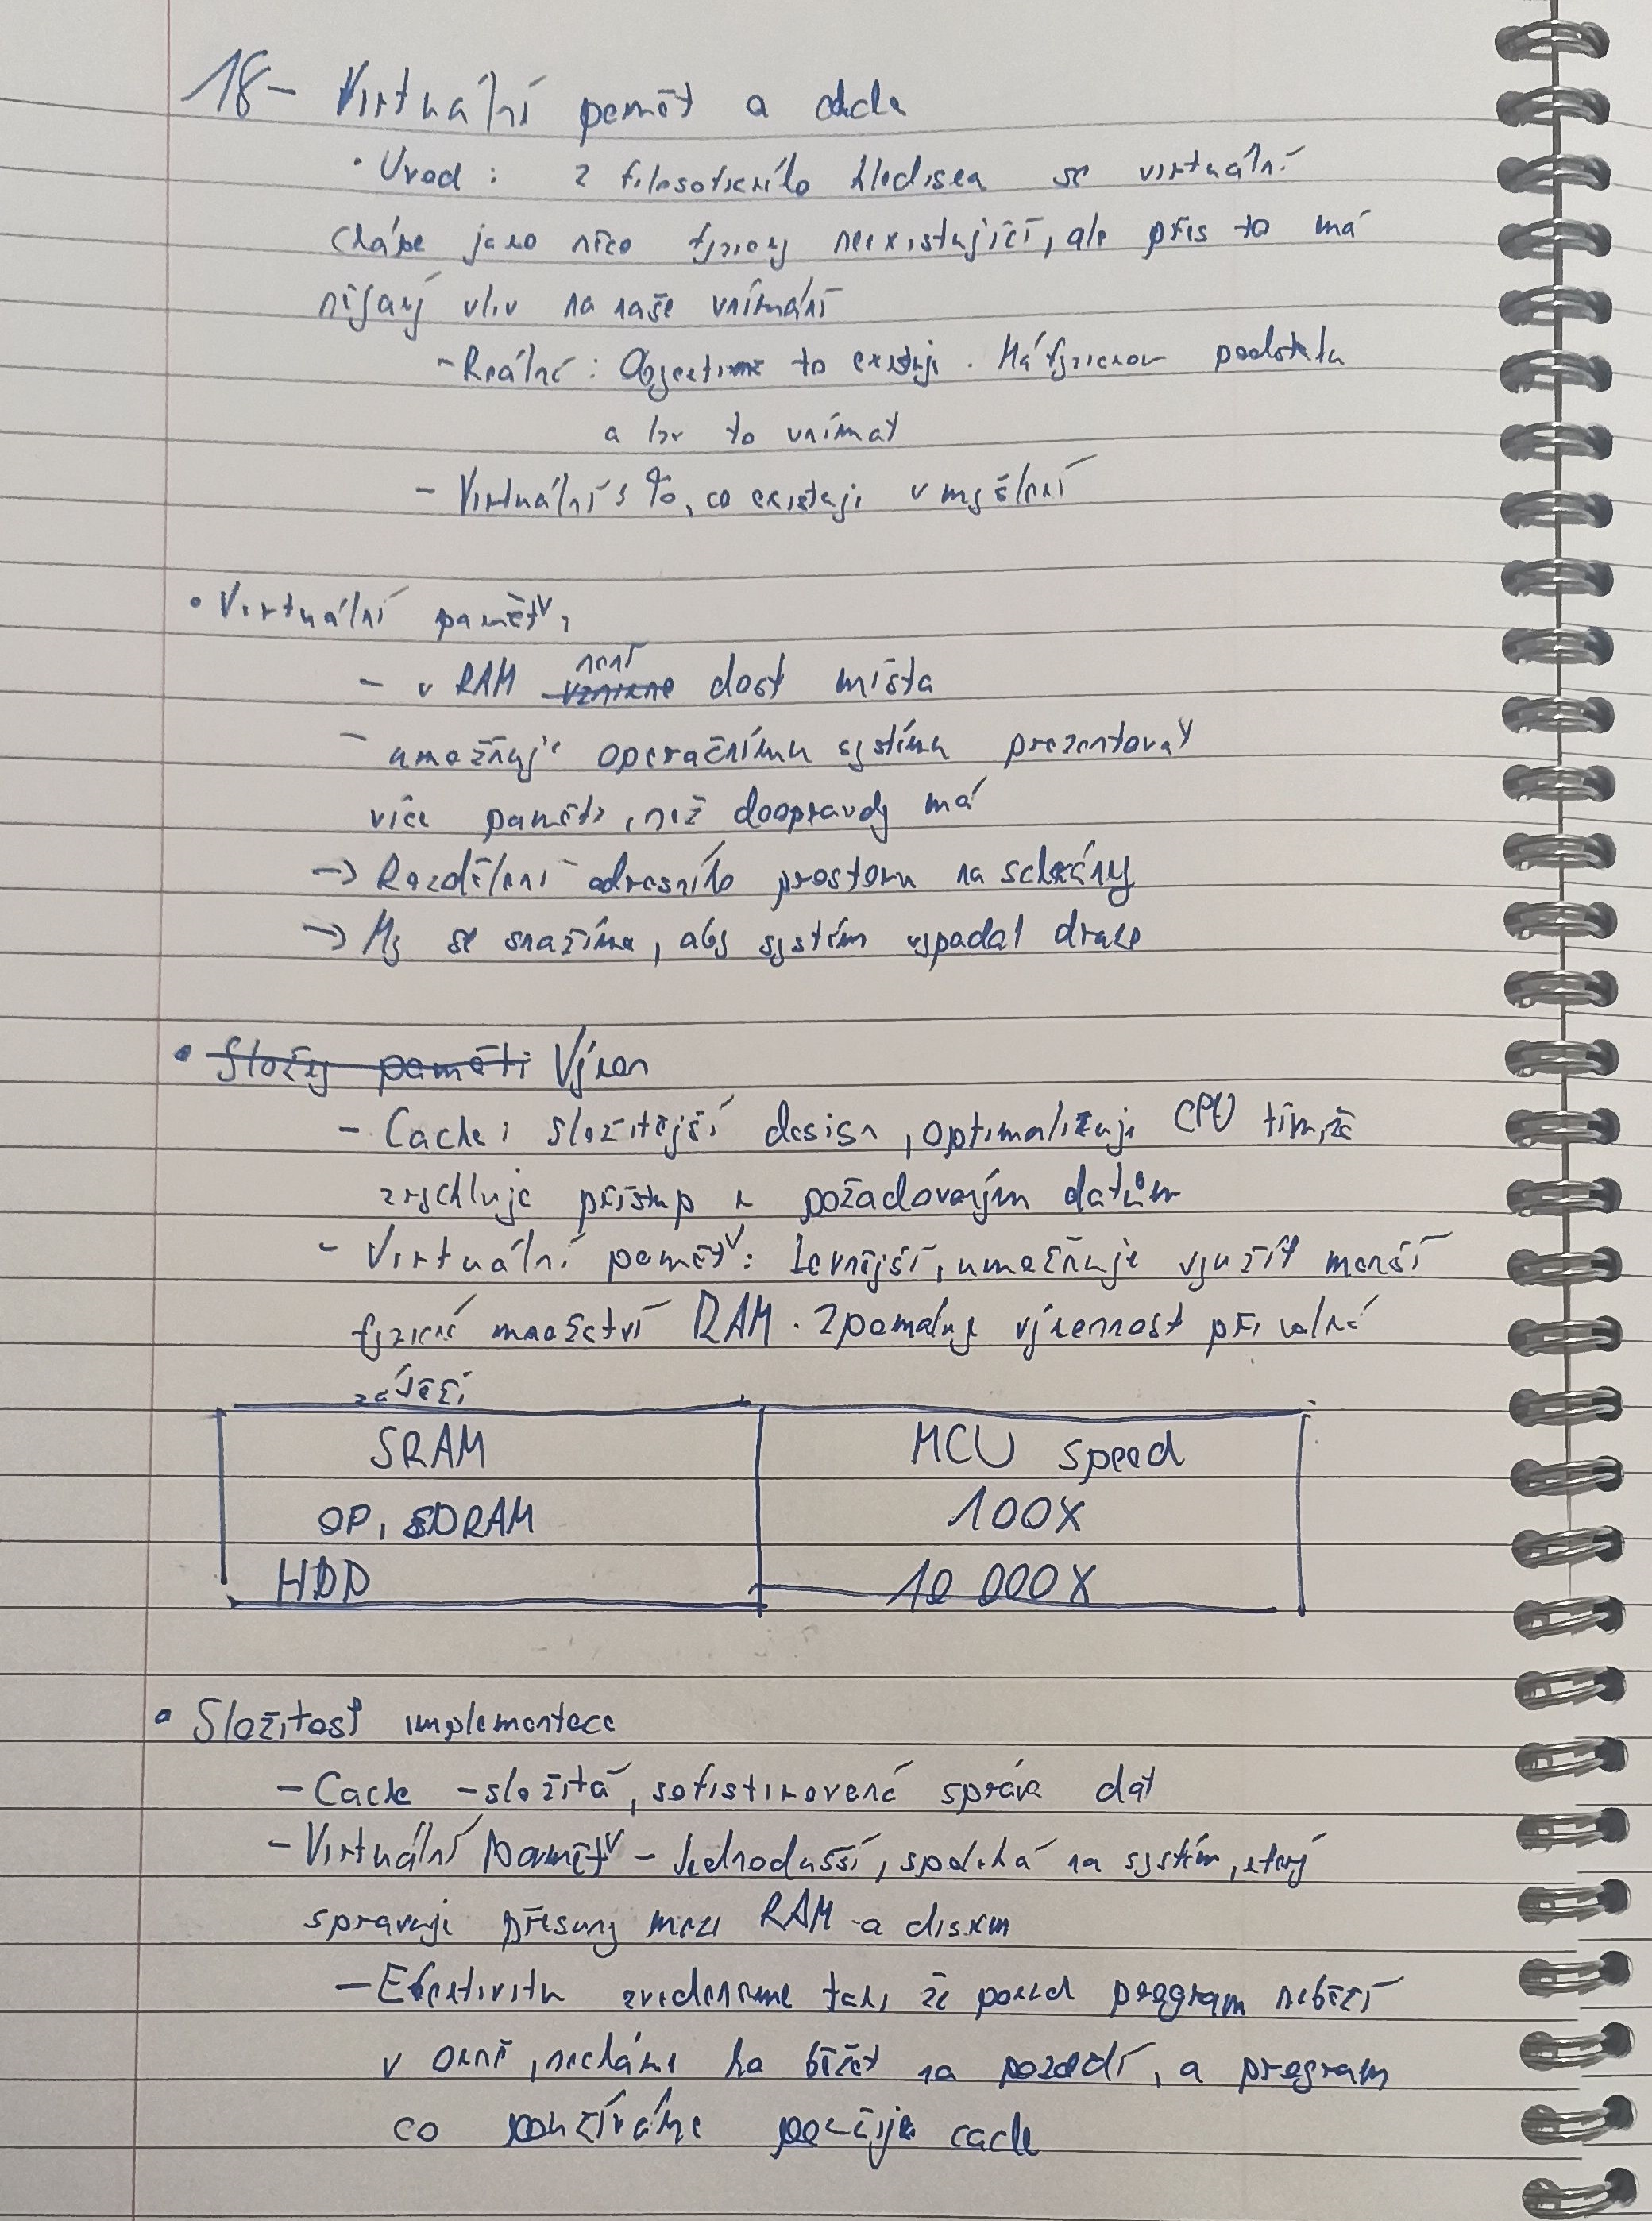 18 - Virtuální pamět a cache
• Úvod: z filosofického hlediska se virtuální
chápe jako něco fyzicky neexistující, ale přes to má
nějaký vliv na naše vnímání
- Reálné: Objektivně to existuje. Má fyzickou podstatu
a lze to vnímat
- Virtuální: To, co existuje v myšlení
• Virtuální paměť:
- v RAM není dost místa
- umožňuje operačnímu systému prezentovat
více paměti, než doopravdy má
→ Rozdělení adresního prostoru na schránky
→ My se snažíme, aby systém vypadal draze
• Složky paměti Výkon
- Cache: složitější design, optimalizuje CPU tím, že
zrychluje přístup k požadovaným datům
- Virtuální paměť: Levnější, umožňuje využít menší
fyzické množství RAM. Zpomaluje výkonnost při velké
zátěži
SRAM MCU speed
OP, SDRAM 100X
HDD 10 000X
• Složitost implementace
- Cache - složitá, sofistikovaná správa dat
- Virtuální Paměť - Jednodušší, spoléhá na systém, který
spravuje přesuny mezi RAM a diskem
- Efektivitu zvedneme tak, že pokud program neběží
v okně, necháme ho běžet na pozadí, a program
co používáme používá cache